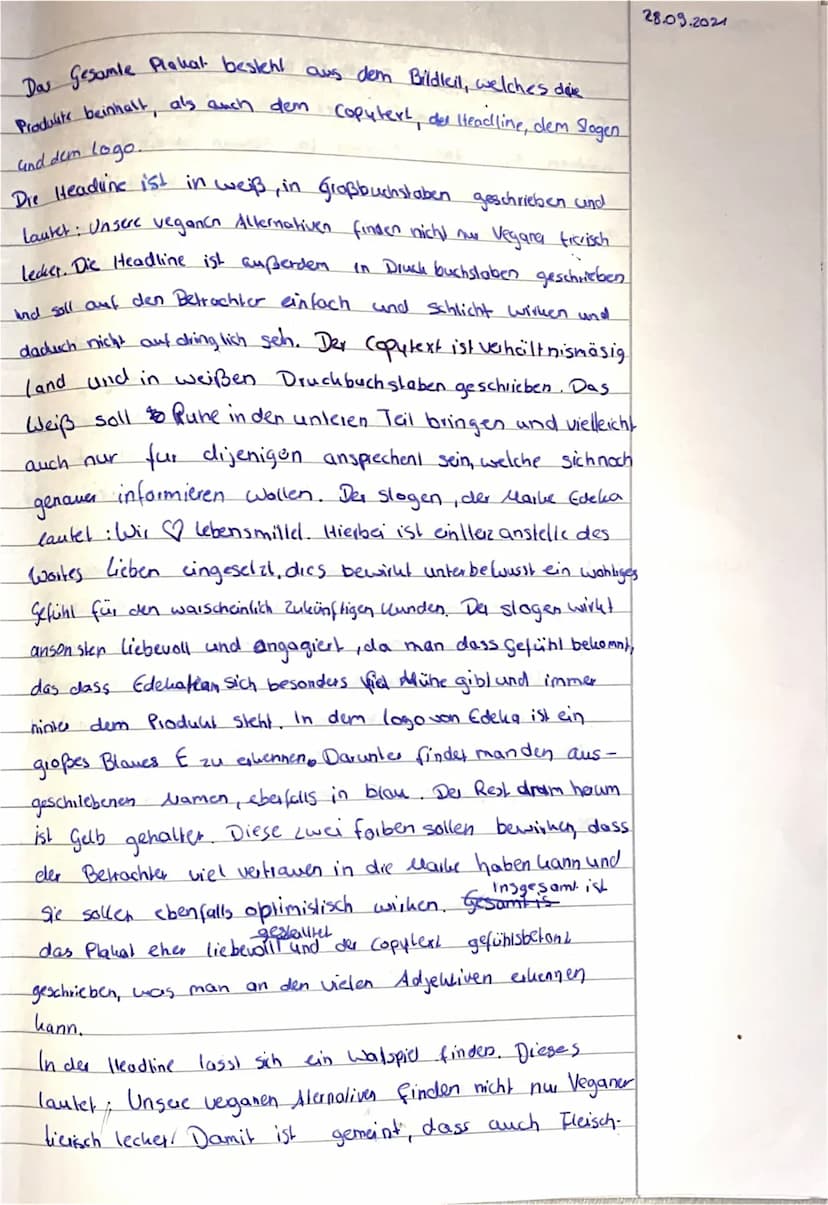 28.09.2021
Das Gesamte Plakat besteht aus dem Bildteil, welches die
Produkte beinhalt, als auch dem Copytext, der Headline, dem Slogen
und dem Logo.
Die Headline ist in weiß, in Großbuchstaben geschrieben und
lautet: Unsere veganen Alternativen finden nicht nur Veganer tierisch
lecker. Die Headline ist außerdem in Druckbuchstaben geschrieben
und soll auf den Betrachter einfach und schlicht wirken und
daduch nicht aufdringlich sein. Der Copytext ist verhältnismäsig
land und in weißen Druchbuchstaben geschrieben. Das
Weiß soll Ruhe in den unteren Teil bringen und vielleicht
auch nur fur dijenigen ansprechent sein, welche sich noch
genauer informieren wollen. Der Slogen, der Marke Edeka
lautet: Wir ♡ Lebensmittel. Hierbei ist ein Herz anstelle des
Wortes Lieben eingesetzt, dies bewirkt unterbewusst ein wohliges
Gefühl für den warscheinlich zukünftigen Kunden. Der slogen wirkt
ansonsten liebevoll und angagiert, da man dass Gefühl bekomnt,
das dass Edekateam sich besonders viel Mühe gibt und immer
hinter dem Produkt steht. In dem Logo von Edeka ist ein
großes Blaues E zu erkennen. Darunter findet man den aus-
geschriebenen Namen, ebenfalls in blau. Der Rest drum herum
ist Gelb gehalten. Diese zwei farben sollen bewirken, dass
der Betrachter viel vertrauen in die Marke haben kann und
Sie sollen ebenfalls optimistisch wirken. Gesamt is Insgesamt ist
das Plakat eher liebevoll gestaltet und der Copytext gefühlsbetont
geschrieben, was man an den vielen Adjektiven erkennen
kann.
In der Headline lasst sich ein Wortspiel finden. Dieses
lautet: Unsere veganen Alternativen finden nicht nur Veganer
tierisch lecker! Damit ist gemeint, dass auch Fleisch-